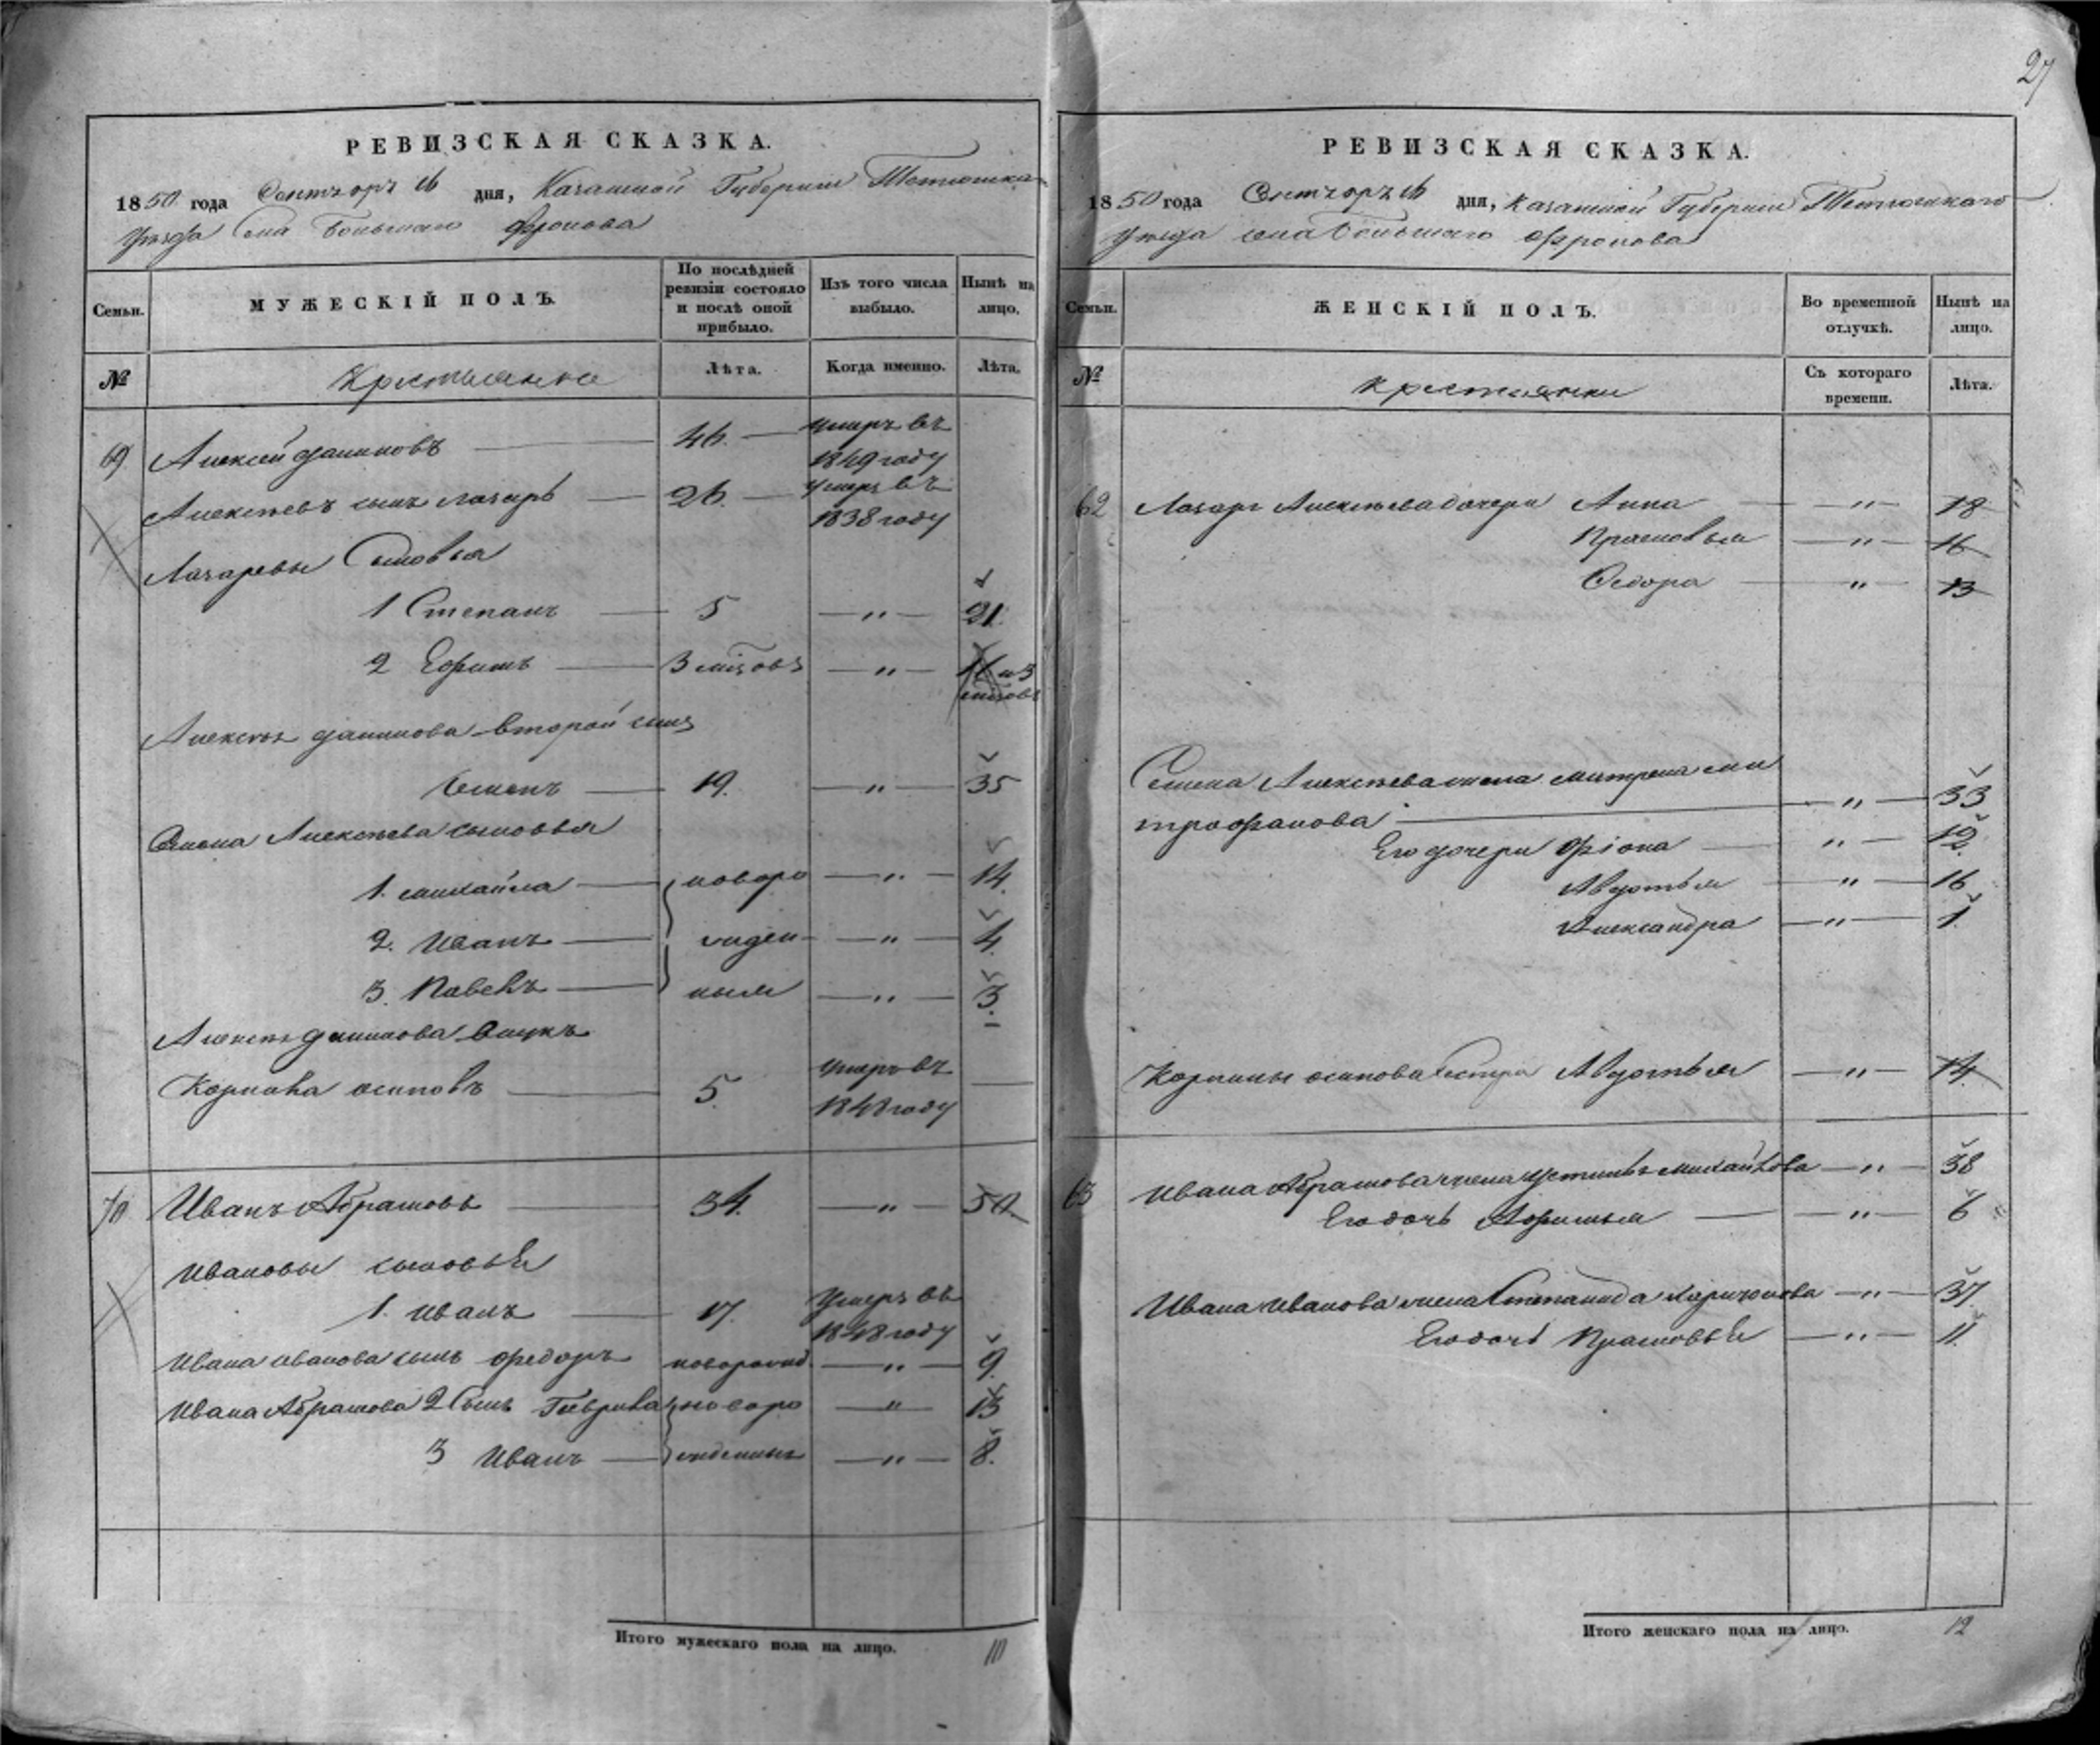 27
РЕВИЗСКАЯ СКАЗКА.
1850 года дня, Казанской Губернии
Уѣзда Села Большаго Фролова
Семьи. МУЖЕСКІЙ ПОЛЪ. По послѣдней ревизіи состояло и послѣ оной прибыло. Изъ того числа выбыло. Нынѣ на лицо.
№ Крестьяне Лѣта. Когда именно. Лѣта.
69. Алексей Даниловъ 46. умеръ въ
1849 году
Алексѣевъ сынъ Лазарь 26. умеръ въ
1838 году
Лазаревы Сыновья
1 Степанъ 5 — " — 21.
2 Ефимъ 3 — " —
Алексѣя Данилова второй сынъ
Семенъ 19. — " — 35
Семена Алексѣева сыновья
1. Михайла новоро — " — 14.
2. Иванъ жден — " — 4.
3. Павелъ ныя — " — 3.
Алексѣя Данилова внукъ
Корнила Осиповъ 5. умеръ въ
1848 году
70. Иванъ Абрамовъ 34. — " — 50
Ивановы сыновья
1. Иванъ 17. Умеръ въ
1848 году
Ивана Иванова сынъ Федоръ новорожд. — " — 9.
Ивана Абрамова 2 Сынъ Гаврила новоро — " — 13
3 Иванъ жденныя — " — 8.
Итого мужескаго пола на лицо. 10
РЕВИЗСКАЯ СКАЗКА.
1850 года дня, Казанской Губернии Тетюшскаго
Уѣзда села Большаго Фролова
Семьи. ЖЕНСКІЙ ПОЛЪ. Во временной отлучкѣ. Нынѣ на лицо.
№ Крестьянки Съ котораго времени. Лѣта.
62 Лазаря Алексѣева дочери Анна — " — 18
Прасковья — " — 16
Федора — " — 13
Семена Алексѣева жена Матрена Ми
трофанова — " — 33
Его дочери Фіона — " — 19.
Авдотья — " — 16
Александра — " — 1.
Корнилы Осипова Сестра Авдотья — " — 14.
63 Ивана Абрамова жена Устинья Михайлова — " — 38
Его дочь Афимья — " — 6
Ивана Иванова жена Степанида Харитонова — " — 37.
Его дочь Прасковья — " — 11.
Итого женскаго пола на лицо. 12